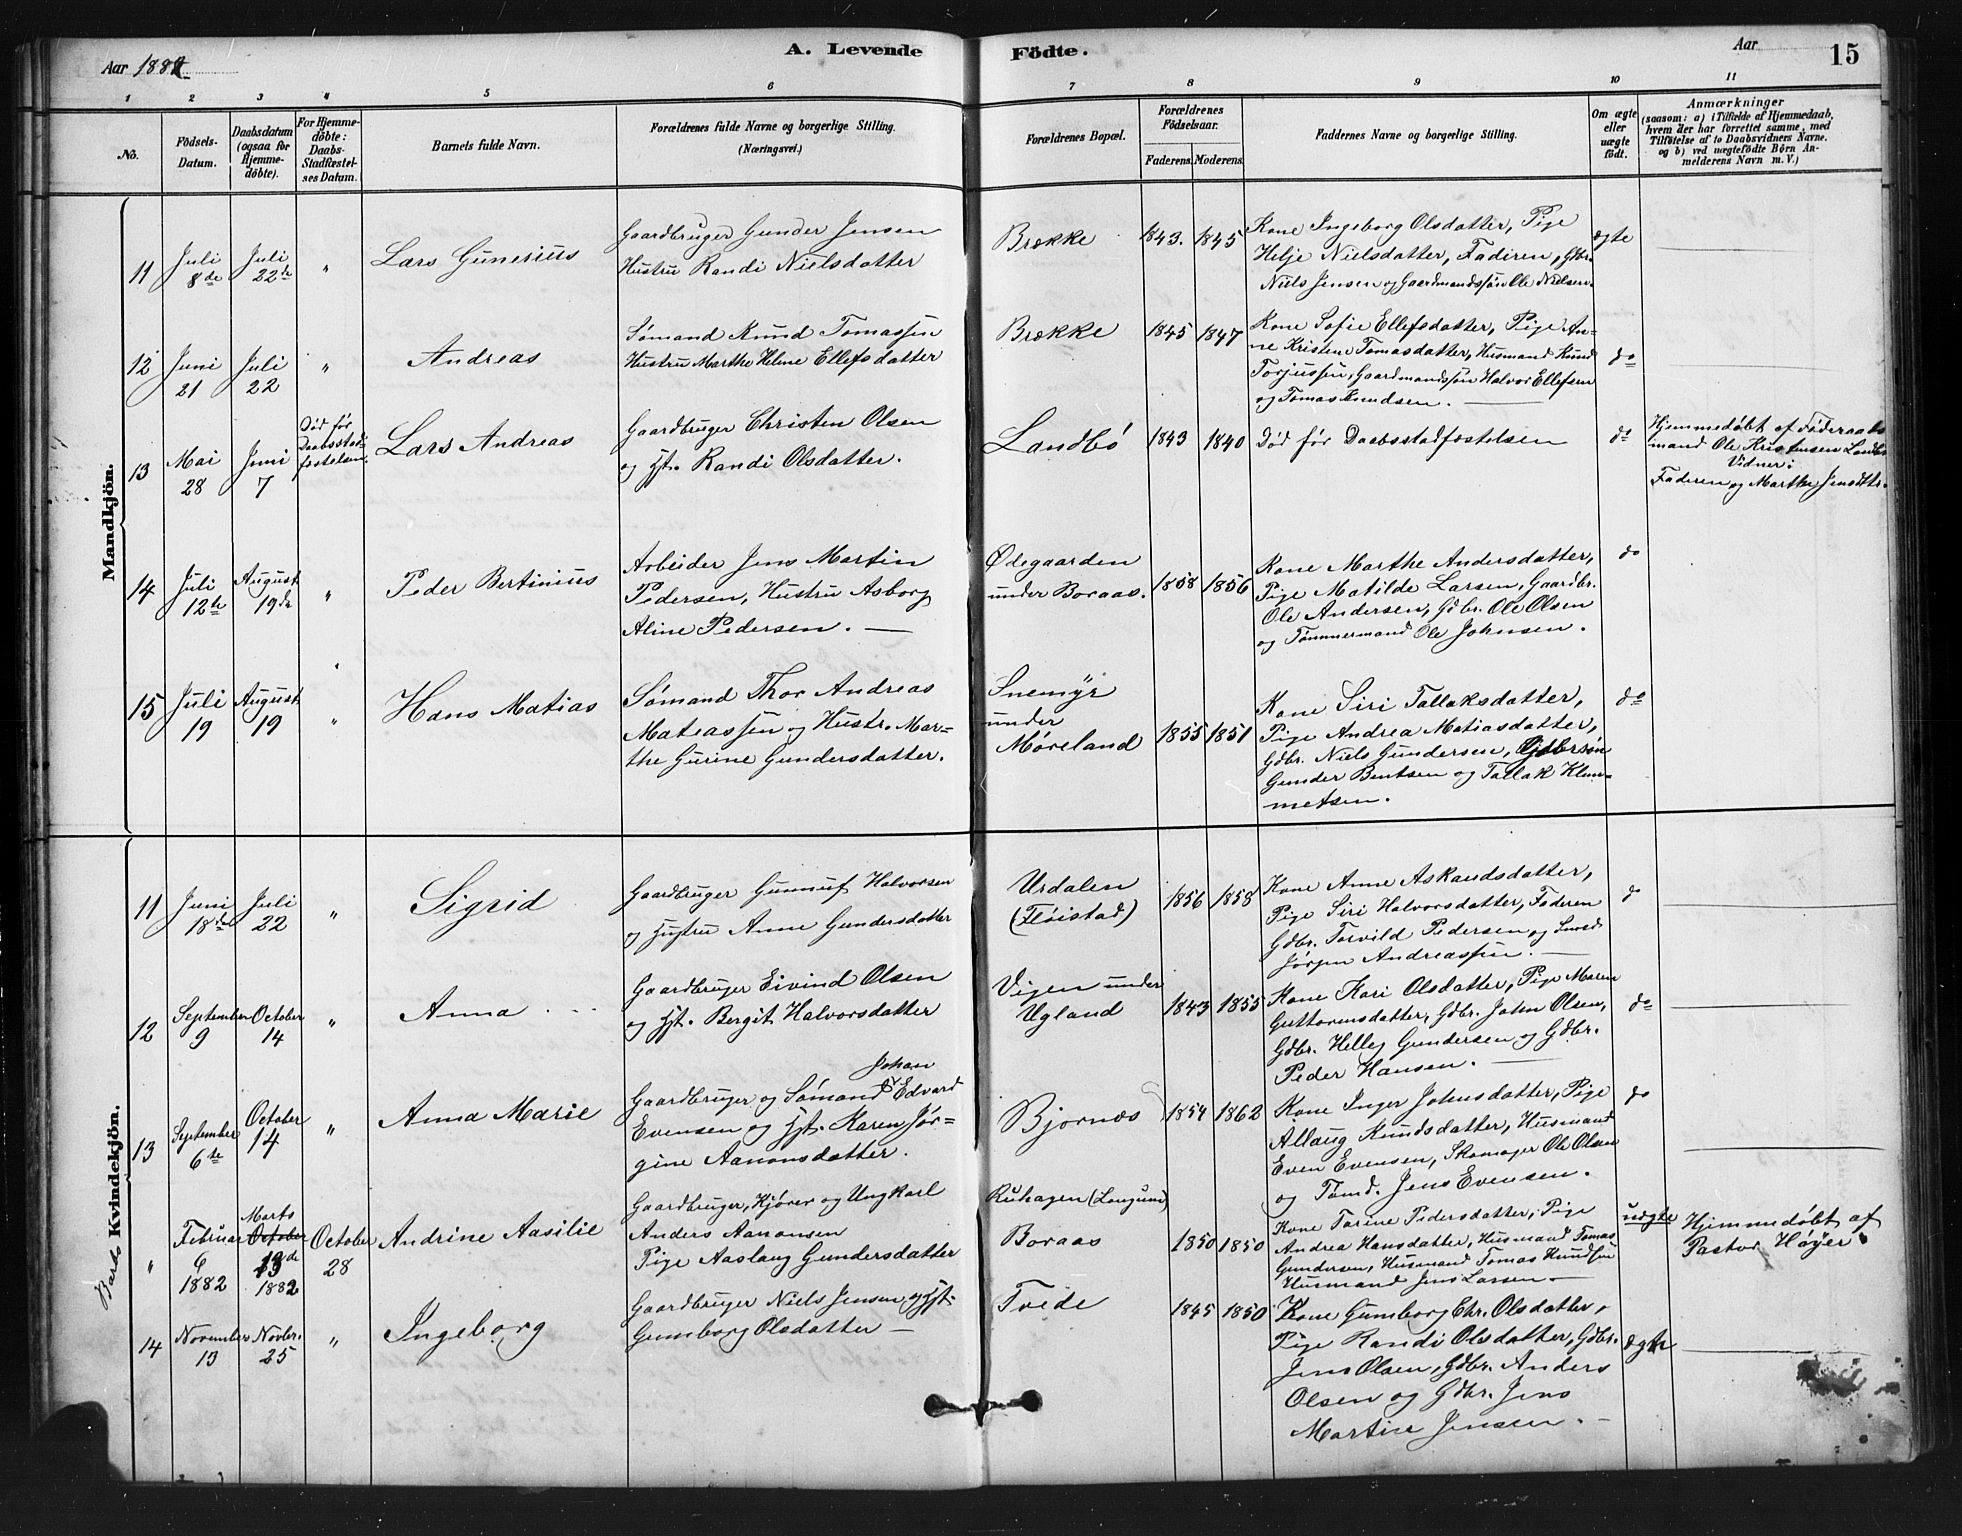 A. Levende Födte.
Aar 1882
Aar
15
1 2 3 4 5 6 7 8 9 10 11
No.
Födsels-Datum.
Daabsdatum (ogsaa for Hjemmedöbte).
For Hjemmedöbte: Daabs-Stadfæstelses Datum.
Barnets fulde Navn.
Forældrenes fulde Navne og borgerlige Stilling.
(Næringsvei.)
Forældrenes Bopæl.
Forældrenes Födselsaar.
Faderens. Moderens.
Faddernes Navne og borgerlige Stilling.
Om ægte eller uægte födt.
Anmærkninger
(saasom: a) i Tilfælde af Hjemmedaab, hvem der har forrettet samme, med Tilföielse af to Daabsvidners Navne. og b) ved uægtefödte Börn Anmelderens Navn m. V.)
Mandkjön.
11 Juli 8de Juli 22de " Lars Gunerius
Gaardbruger Gunder Jensen
Hustru Randi Nielsdatter
Brække 1843. 1845
Kone Ingeborg Olsdatter, Pige
Helje Nielsdatter, Faderen, Gbr.
Niels Jensen og Gaardmandssøn Ole Nielsen.
ægte
12 Juni 21 Juli 22 " Andreas
Sømand Knud Tomassen
Hustru Marthe Helene Ellefsdatter
Brække 1845 1847
Kone Sofie Ellefsdatter, Pige An-
ne Kristen Tomasdatter, Husmand Knud
Torjussen, Gaardmandssøn Halvor Ellefsen
og Tomas Knudsen.
do
13 Mai 28 Juni 7
Død før
Daabsstad-
fæstelsen.
Lars Andreas
Gaardbruger Christen Olsen
og Hst. Randi Olsdatter.
Landbö 1843 1840 Død før Daabsstadfæstelsen
do
Hjemmedøbt af Føderaads
mand Ole Kristensen Landbö
Vidner:
Faderen og Marthe Jensdtr.
14 Juli 12te August 19de " Peder Bertinius
Arbeider Jens Martin
Pedersen, Hustru Asborg
Aline Pedersen.
Ødegaarden
under Boraas. 1858 1856
Kone Marthe Andersdatter,
Pige Matilde Larsen, Gaardbr.
Ole Andersen, Gdbr. Ole Olsen
og Tømmermand Ole Johnsen.
do
15 Juli 19 August 19 " Hans Matias
Sømand Thor Andreas
Matiassen og Hustr. Mar-
the Gurine Gundersdatter.
Snemyr
under
Møreland 1855 1851
Kone Siri Tallaksdatter,
Pige Andrea Matiasdatter,
Gdbr. Niels Gundersen, Gdbrsøn
Gunder Bentsen og Tallak Klem-
metsen.
do
Kvindekjön.
11 Juni 18de Juli 22 " Sigrid
Gaardbruger Gunnuf Halvorsen
og Hustru Anne Gundersdatter
Urdalen
(Fløistad) 1856 1858
Kone Anne Askandsdatter,
Pige Siri Halvorsdatter, Faderen
Gdbr. Torvild Pedersen og
Jørgen Andreassen.
do
12 September 9 October 14 " Anna
Gaardbruger Eivind Olsen
og Hst. Bergit Halvorsdatter
Vigen under
Ugland 1843 1855
Kone Kari Olsdatter, Pige Maren
Guttormsdatter, Gdbr. John Olsen,
Gdbr. Helleg Gundersen og Gdbr.
Peder Hansen.
do
13 September 6te October 14 " Anna Marie
Johan
Gaardbruger og Sømand Edvard
Evensen og Hst. Karen Jør-
gine Aanonsdatter.
Bjornæs 1854 1862
Kone Inger Johnsdatter, Pige
Allaug Knudsdatter, Husmand
Even Evensen, Skomager Ole Olsen
og Tømd. Jens Evensen.
do
" Februar 6 1882 Marts October 13de 1882 October 28 Andrine Aasilie
Gaardbruger, Kjører og Ungkarl
Anders Aanonsen
Pige Aaslaug Gundersdatter
Ruhagen (Longum)
Boraas 1850 1850
Kone Torine Pedersdatter, Pige
Andrea Hansdatter, Husmand Tomas
Gundersen, Husmand Tomas Knudsen
Husmand Jens Larsen
uægte
Hjemmedøbt af
Pastor Høyer
14 November 13 Novbr. 25 " Ingeborg
Gaardbruger Niels Jensen og Hst.
Gumborg Olsdatter
Tvede 1845 1850
Kone Gumborg Chr. Olsdatter,
Pige Randi Olsdatter, Gdbr.
Jens Olsen, Gdbr. Anders
Olsen og Gdbr. Jens
Martin Jensen.
ægte